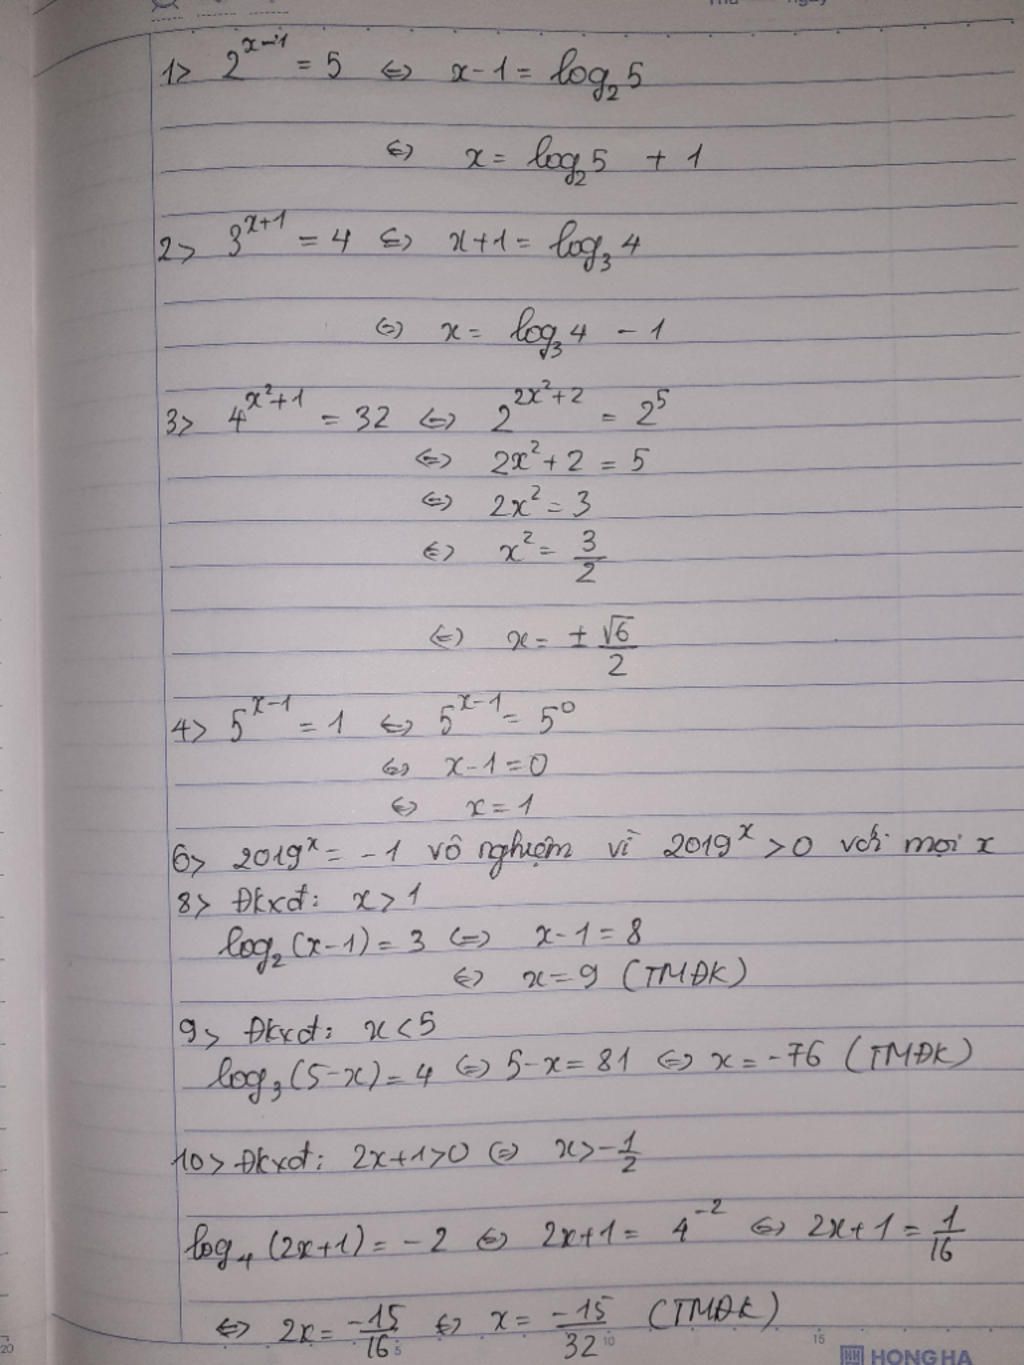 1> 2^{x-1} = 5 ⇔ x-1 = log₂5
⇔ x = log₂5 + 1
2> 3^{x+1} = 4 ⇔ x+1 = log₃4
⇔ x = log₃4 - 1
3> 4^{x²+1} = 32 ⇔ 2^{2x²+2} = 2⁵
⇔ 2x²+2 = 5
⇔ 2x² = 3
⇔ x² = 3/2
⇔ x = ± √6/2
4> 5^{x-1} = 1 ⇔ 5^{x-1} = 5⁰
⇔ x-1=0
⇔ x=1
6> 2019^x = -1 vô nghiệm vì 2019^x > 0 với mọi x
8> Đkxđ: x > 1
log₂(x-1) = 3 ⇔ x-1 = 8
⇔ x=9 (TMĐK)
9> Đkxđ: x < 5
log₃(5-x) = 4 ⇔ 5-x = 81 ⇔ x = -76 (TMĐK)
10> Đkxđ: 2x+1>0 ⇔ x>-1/2
log₄(2x+1) = -2 ⇔ 2x+1 = 4^{-2} ⇔ 2x+1 = 1/16
⇔ 2x = -15/16 ⇔ x = -15/32 (TMĐK)
20 5 10 15
HH HONG HA